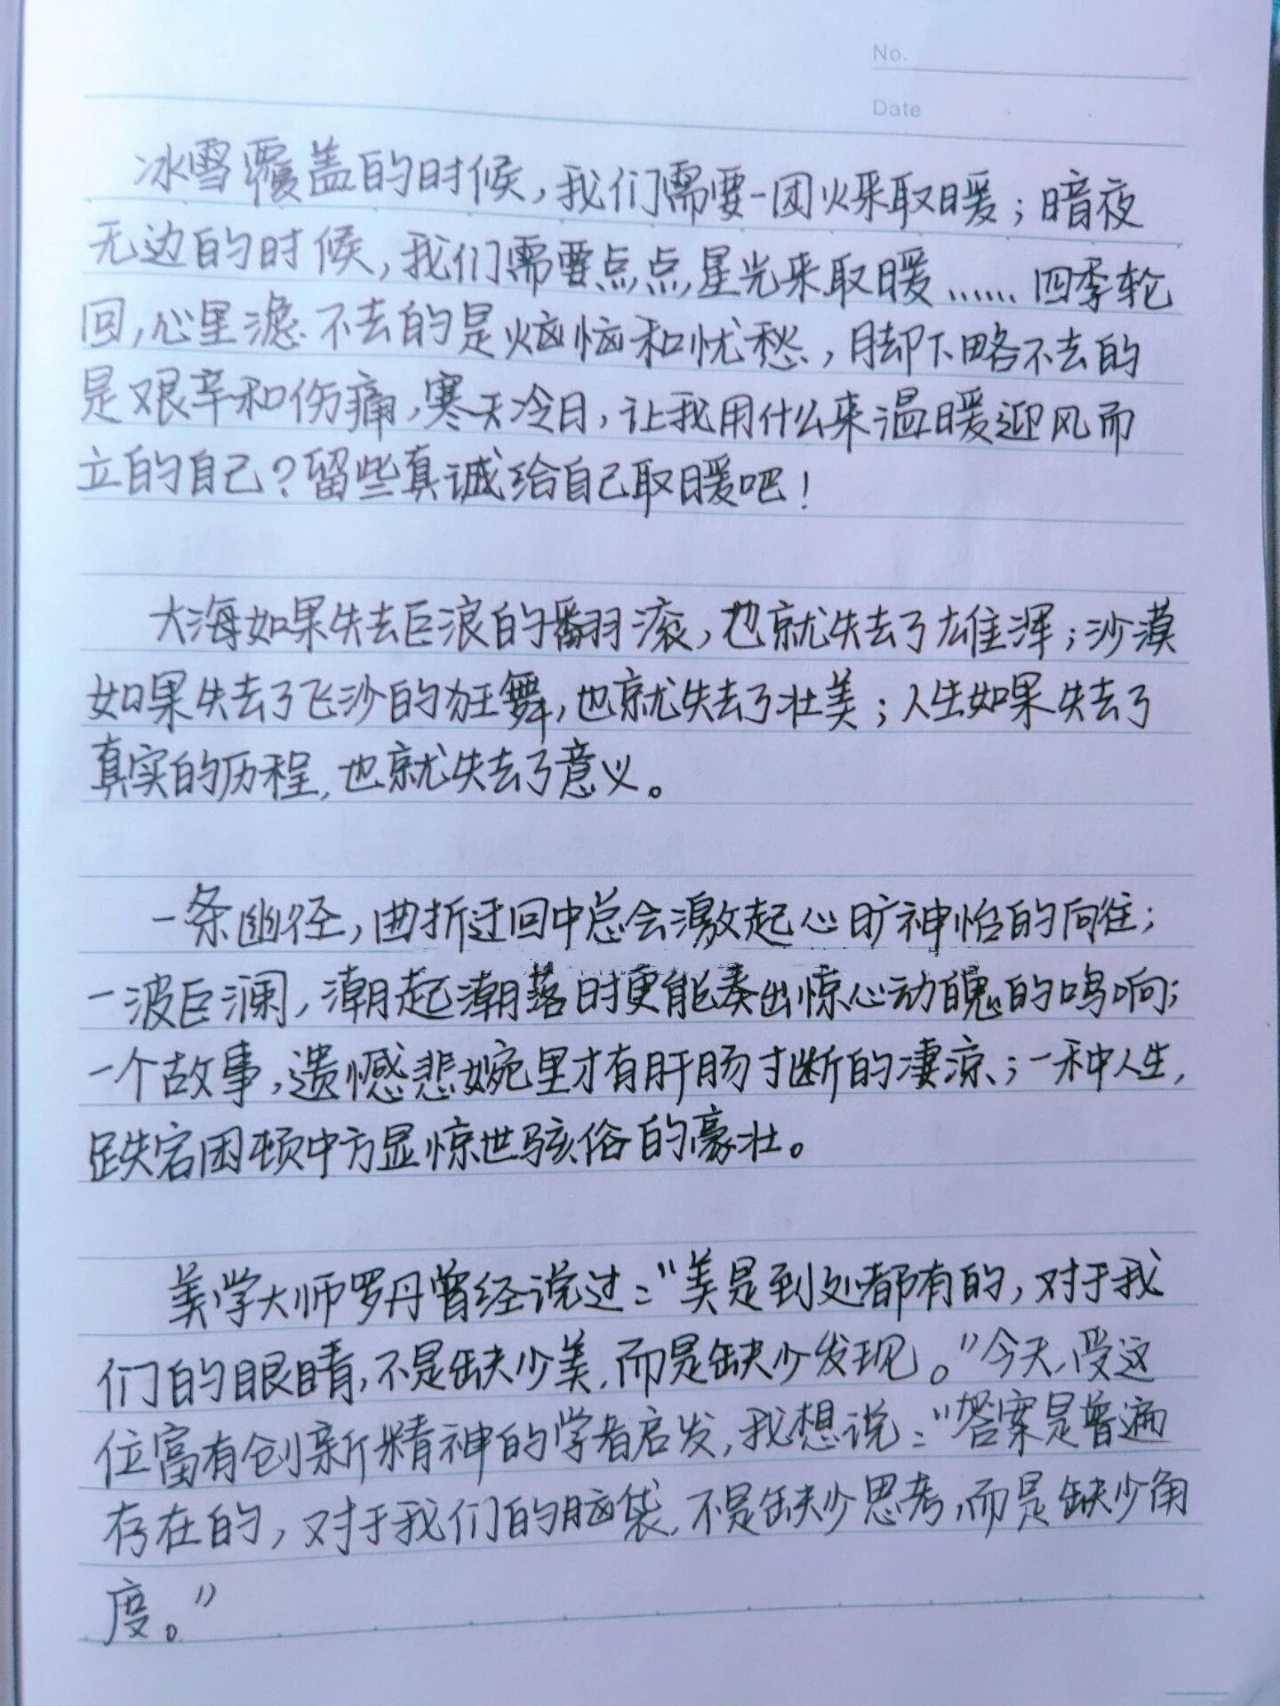 No.
Date
冰雪覆盖的时候，我们需要一团火来取暖；暗夜
无边的时候，我们需要点点星光来取暖……四季轮
回，心里滤不去的是烦恼和忧愁，脚下略不去的
是艰辛和伤痛，寒天冷日，让我用什么来温暖迎风而
立的自己？留些真诚给自己取暖吧！
大海如果失去巨浪的翻滚，也就失去了雄浑；沙漠
如果失去了飞沙的狂舞，也就失去了壮美；人生如果失去了
真实的历程，也就失去了意义。
一条幽径，曲折迂回中总会激起心旷神怡的向往；
一波巨澜，潮起潮落时更能奏出惊心动魄的鸣响；
一个故事，遗憾悲婉里才有肝肠寸断的凄凉；一种人生，
跌宕困顿中方显惊世骇俗的豪壮。
美学大师罗丹曾经说过：“美是到处都有的，对于我
们的眼睛，不是缺少美，而是缺少发现。”今天，受这
位富有创新精神的学者启发，我想说：“答案是普遍
存在的，对于我们的脑袋，不是缺少思考，而是缺少角
度。”